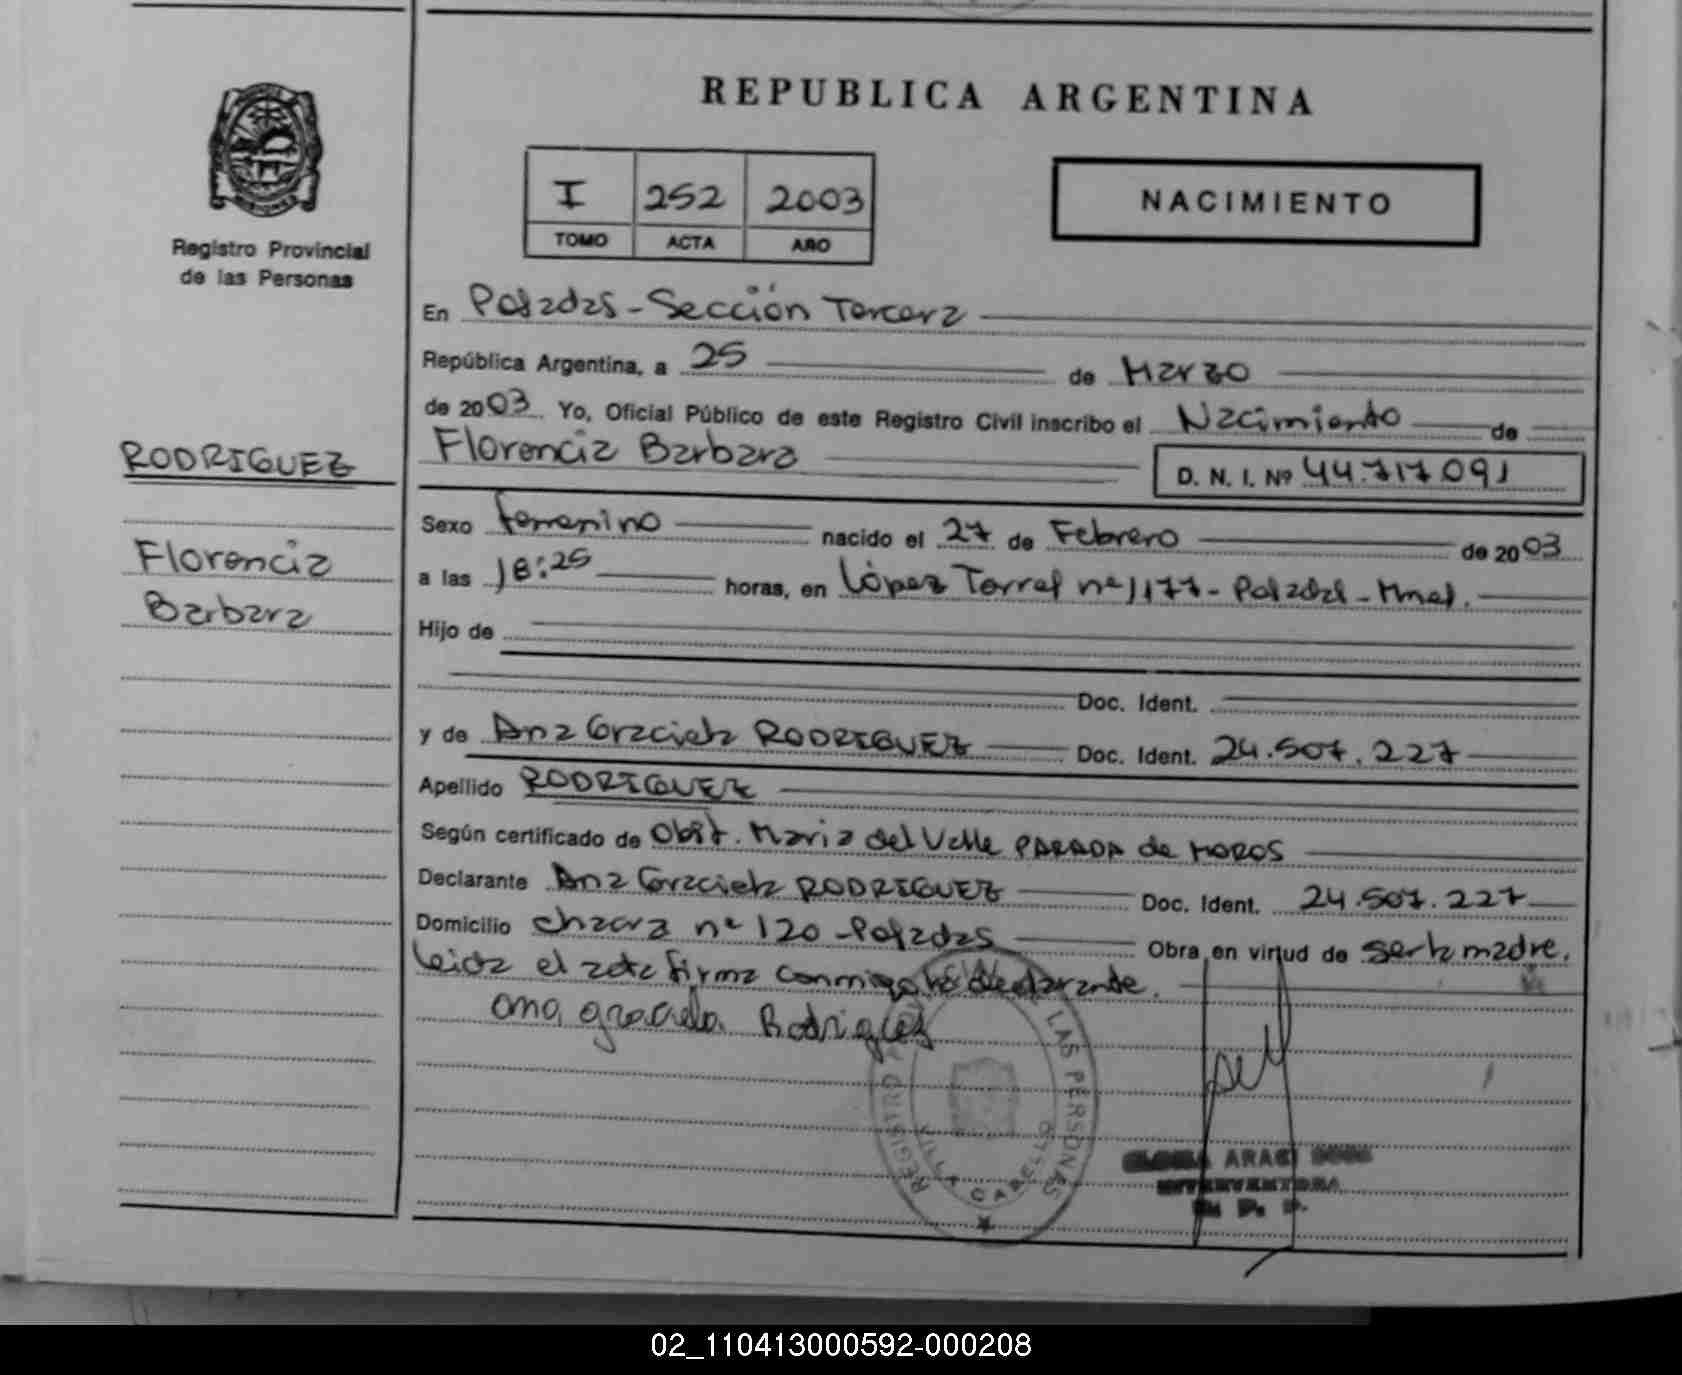 REPUBLICA ARGENTINA
I 252 2003
TOMO ACTA AÑO
NACIMIENTO
Registro Provincial
de las Personas
En Posadas - Sección Tercera
República Argentina, a 25 de Marzo
de 2003 Yo, Oficial Público de este Registro Civil inscribo el Nacimiento de
Florencia Barbara
D. N. I. Nº 44.717.091
RODRIGUEZ
Florencia
Barbara
Sexo femenino nacido el 27 de Febrero de 2003
a las 18:25 horas, en López Torres nº 1177 - Posadas - Mnes.
Hijo de
Doc. Ident.
y de Ana Graciela RODRIGUEZ Doc. Ident. 24.507.227
Apellido RODRIGUEZ
Según certificado de Obst. Maria del Valle PARADA de MOROS
Declarante Ana Graciela RODRIGUEZ Doc. Ident. 24.507.227
Domicilio chacra nº 120 - Posadas Obra en virtud de ser la madre.
Leida el acta firma conmigo la declarante.
ana graciela Rodriguez
REGISTRO LAS PERSONAS
VILLA CABELLO
ARACI
INTERVENTORA
02_110413000592-000208